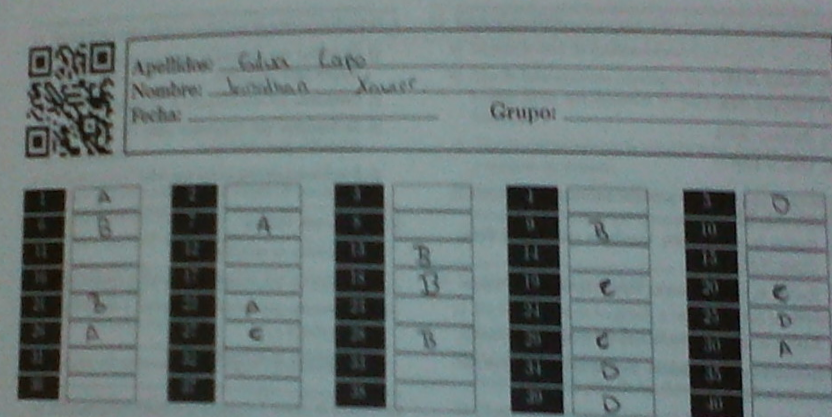 Apellidos: Lapo
Nombre: Xavier
Fecha: Grupo:
1 A 2 3 4 5 D
6 B 7 A 8 9 B 10
11 12 13 B 14 15
16 17 18 B 19 C 20 C
21 B 22 A 23 24 25 D
26 A 27 C 28 B 29 C 30 A
31 32 33 34 D 35
36 37 38 39 D 40